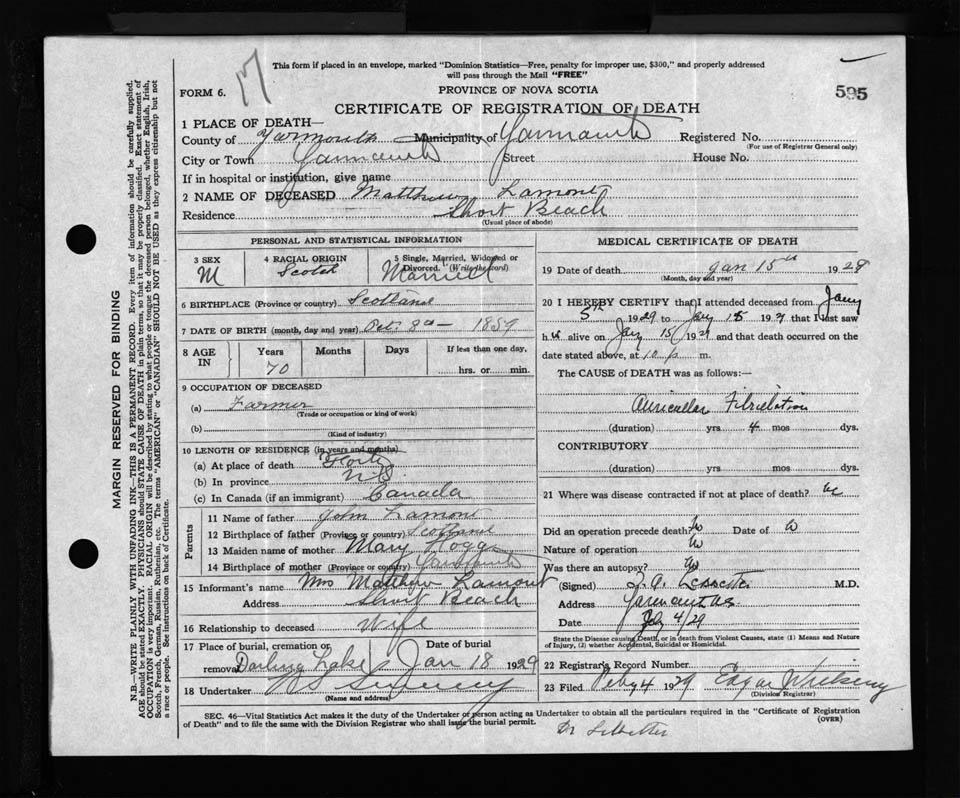 17
This form if placed in an envelope, marked "Dominion Statistics—Free, penalty for improper use, $300," and properly addressed
will pass through the Mail "FREE"
595
FORM 6.
PROVINCE OF NOVA SCOTIA
CERTIFICATE OF REGISTRATION OF DEATH
1 PLACE OF DEATH—
County of Yarmouth Municipality of Yarmouth Registered No.
(For use of Registrar General only)
City or Town Yarmouth Street House No.
If in hospital or institution, give name
2 NAME OF DECEASED Matthew Lamont
Residence Short Beach
(Usual place of abode)
PERSONAL AND STATISTICAL INFORMATION
3 SEX M
4 RACIAL ORIGIN Scotch
5 Single, Married, Widowed or Divorced. (Write the word) Married
6 BIRTHPLACE (Province or country) Scotland
7 DATE OF BIRTH (month, day and year) 1859
8 AGE IN Years Months Days If less than one day,
70 hrs. or min.
9 OCCUPATION OF DECEASED
(a) Farmer
(Trade or occupation or kind of work)
(b)
(Kind of industry)
10 LENGTH OF RESIDENCE (in years and months)
(a) At place of death
(b) In province N S
(c) In Canada (if an immigrant) Canada
Parents
11 Name of father John Lamont
12 Birthplace of father (Province or country) Scotland
13 Maiden name of mother Mary
14 Birthplace of mother (Province or country)
15 Informant's name Mrs Matthew Lamont
Address Short Beach
16 Relationship to deceased Wife
17 Place of burial, cremation or removal Darling Lake Date of burial Jan 18 1929
18 Undertaker
(Name and address)
MEDICAL CERTIFICATE OF DEATH
19 Date of death Jan 15th 1929
(Month, day and year)
20 I HEREBY CERTIFY that I attended deceased from Jany
5th 1929 to Jany 15 192 that I last saw
h alive on Jany 15 1929 and that death occurred on the
date stated above, at 10 p m.
The CAUSE of DEATH was as follows:—
Auricular Fibrillation
(duration) yrs 4 mos dys.
CONTRIBUTORY
(duration) yrs. mos dys.
21 Where was disease contracted if not at place of death?
Did an operation precede death? Date of
Nature of operation
Was there an autopsy?
(Signed) M.D.
Address Yarmouth NS
Date Feby 4/29
State the Disease causing Death, or in death from Violent Causes, state (1) Means and Nature
of Injury, (2) whether Accidental, Suicidal or Homicidal.
22 Registrar's Record Number
23 Filed Feby 4 1929 Edgar
(Division Registrar)
SEC. 46—Vital Statistics Act makes it the duty of the Undertaker or person acting as Undertaker to obtain all the particulars required in the "Certificate of Registration
of Death" and to file the same with the Division Registrar who shall issue the burial permit.
(OVER)
Dr
MARGIN RESERVED FOR BINDING
N.B.—WRITE PLAINLY WITH UNFADING INK—THIS IS A PERMANENT RECORD. Every item of information should be carefully supplied.
AGE should be stated EXACTLY. PHYSICIANS should STATE CAUSE OF DEATH in plain terms, so that it may be properly classified. Exact statement of
OCCUPATION is very important. RACIAL ORIGIN will be described by stating to what people or tongue the deceased person belonged, whether English, Irish,
Scotch, French, German, Russian, Ruthenian, etc. The terms "AMERICAN" or "CANADIAN" SHOULD NOT BE USED as they express citizenship but not
a race or people. See instructions on back of Certificate.